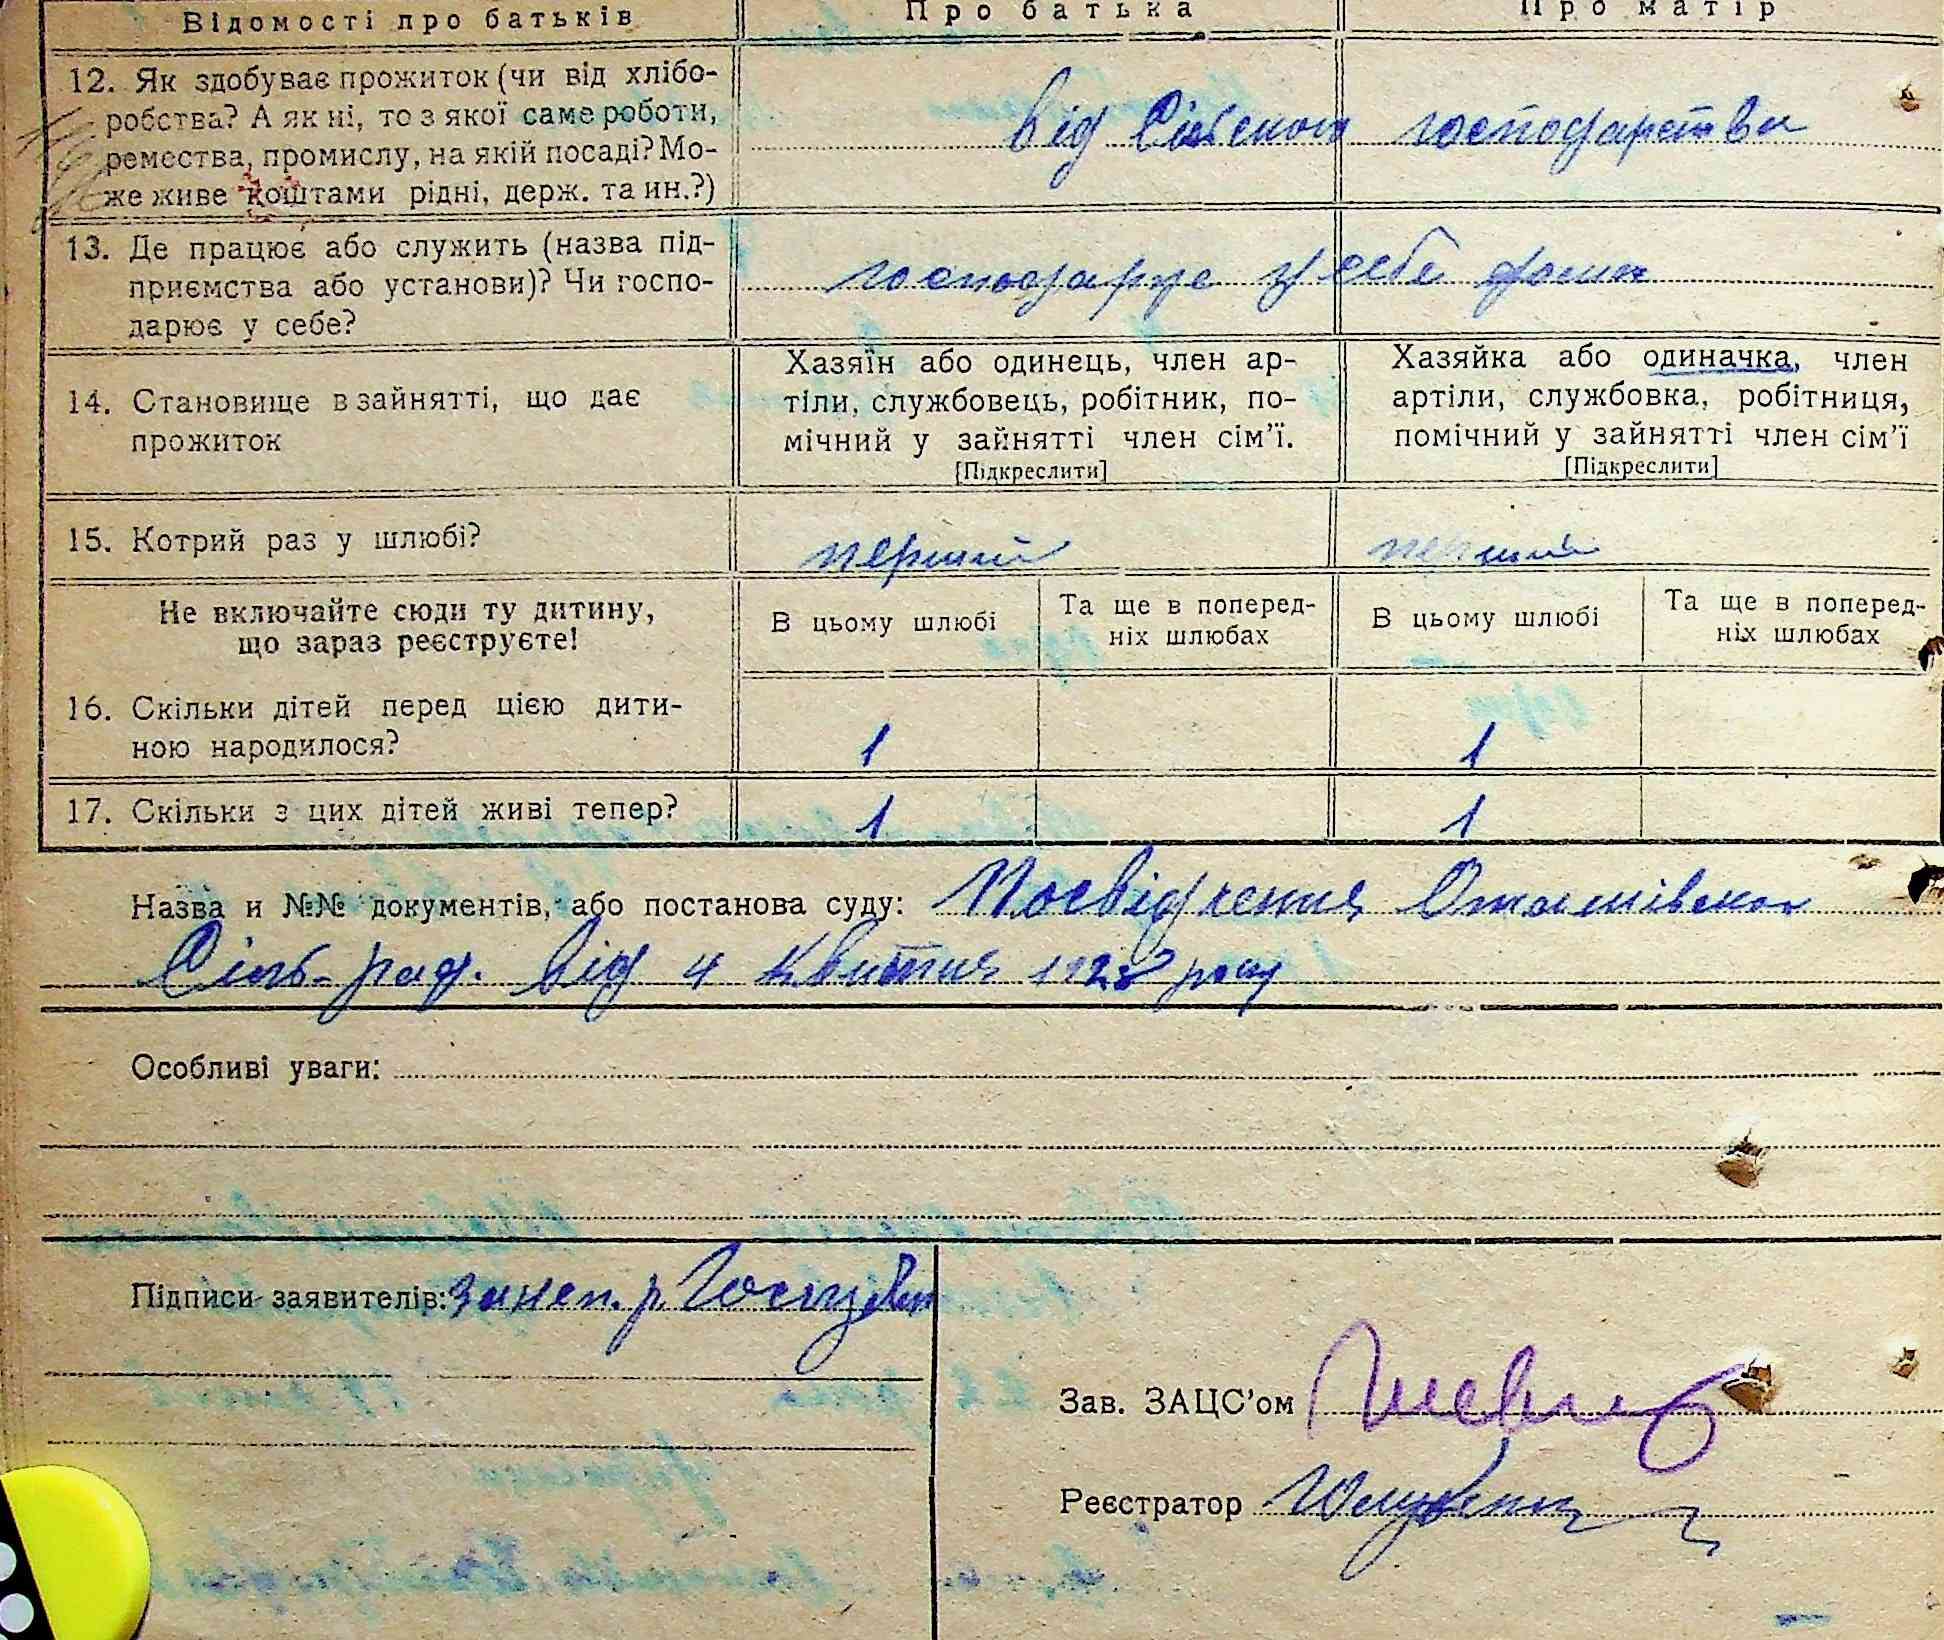 Відомості про батьків
Про батька
Про матір
12. Як здобуває прожиток (чи від хлібо-
робства? А як ні, то з якої саме роботи,
ремества, промислу, на якій посаді? Мо-
же живе коштами рідні, держ. та ин.?)
від Сільського господарства
13. Де працює або служить (назва під-
приємства або установи)? Чи госпо-
дарює у себе?
господарює у себе дома
14. Становище в зайнятті, що дає
прожиток
Хазяїн або одинець, член ар-
тіли, службовець, робітник, по-
мічний у зайнятті член сім’ї.
[Підкреслити]
Хазяйка або одиначка, член
артіли, службовка, робітниця,
помічний у зайнятті член сім’ї
[Підкреслити]
15. Котрий раз у шлюбі?
перший
перший
Не включайте сюди ту дитину,
що зараз реєструєте!
В цьому шлюбі
Та ще в поперед-
ніх шлюбах
В цьому шлюбі
Та ще в поперед-
ніх шлюбах
16. Скільки дітей перед цією дити-
ною народилося?
1
1
17. Скільки з цих дітей живі тепер?
1
1
Назва и №№ документів, або постанова суду: Посвідчення
Сіль-рад. від 4 квітня 1928 року
Особливі уваги:
Підписи заявителів: за неп.
Зав. ЗАЦС’ом
Реєстратор